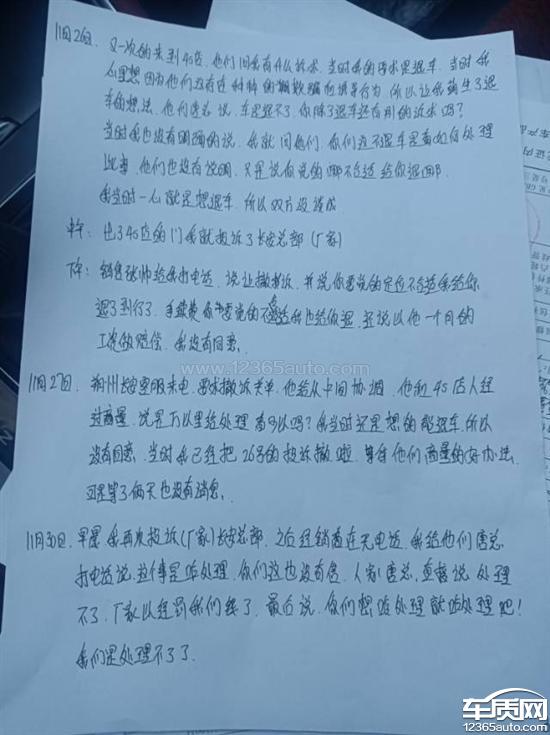 11月26日. 又一次的来到4S店，他们问我有什么诉求，当时我的诉求是退车，当时我
心里想因为他们没有这种种的 欺骗 行为，所以让我萌生了退
车的想法，他们唐总说，车是退不了，你除了退车还有别的诉求吗？
当时我也没有明确的说，我就问他们，你们这不退车是要如何处理
此事，他们也没有说明，只是说你觉的哪不合适给你退回即
我当时一心就是想退车，所以双方没谈成
中午：出了4S店的门我就投诉了长安总部（厂家）
下午：销售张帅给我打电话，说让撤投诉，并说你要觉的定位不合适我给你
退了到行了，手续费你要觉的不合适我也给你退，还说以他一个月的
工资做赔偿，我没有同意.
www.12365auto.com
11月27日. 朔州长安客服来电，要求撤诉关单，他给从中间协调，他和4S店人经
过商量，说是万以里给处理看可以吗？我当时还是想的能退车，所以
没有同意，当时我已经把26号的投诉撤啦，等待他们商量的好办法，
可是等了俩天也没有消息.
11月30日，早晨我再次投诉（厂家）长安总部，之后经销商连无电话，我给他们唐总
打电话说，这件事是咋处理，你们这也没有信，人家唐总，直接说处理
不了，厂家以经罚我们钱了，最后说，你们想咋处理就咋处理吧！
我们是处理不了了.
车质网
www.12365auto.com